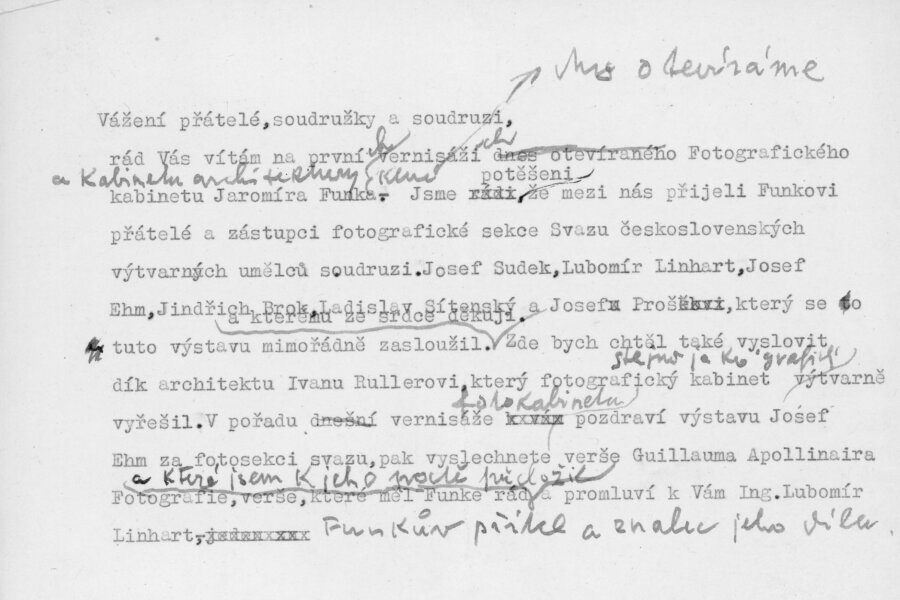 otevíráme
Vážení přátelé,soudružky a soudruzi,
rád Vás vítám na první vernisáži dnes otevíraného Fotografického
a Kabinetu architektury potěšeni
kabinetu Jaromíra Funka. Jsme rádi,že mezi nás přijeli Funkovi
přátelé a zástupci fotografické sekce Svazu československých
výtvarných umělců soudruzi.Josef Sudek,Lubomír Linhart,Josef
Ehm,Jindřich Brok,Ladislav Sítenský a Josef Prošek,který se o
a kterému ze srdce děkuji.
tuto výstavu mimořádně zasloužil. Zde bych chtěl také vyslovit
stejně jako grafiky
dík architektu Ivanu Rullerovi,který fotografický kabinet výtvarně
vyřešil.V pořadu dnešní vernisáže pozdraví výstavu Josef
fotokabinetu
Ehm za fotosekci svazu,pak vyslechnete verše Guillauma Apollinaira
a které jsem k jeho poctě přeložil
Fotografie,verše,které měl Funke rád a promluví k Vám Ing.Lubomír
Linhart, Funkův přítel a znalec jeho díla.